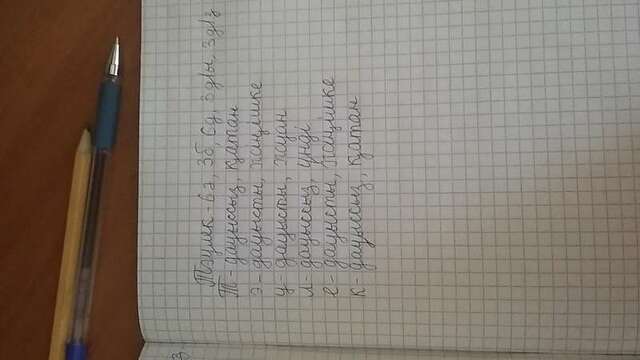 Тәулік - 6ә, 3б, 6д, 3д/ы, 3д/з
Т - дауыссыз, қатаң
ә - дауысты, жіңішке
у - дауысты, жуан
л - дауыссыз, үнді
е - дауысты, жіңішке
к - дауыссыз, қатаң